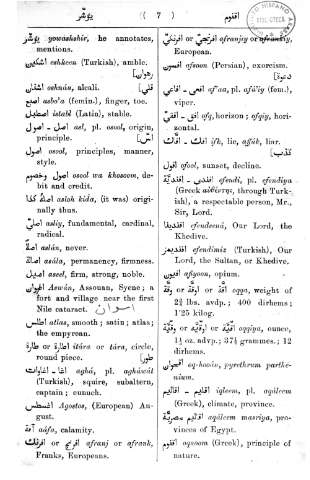 يؤشر
(( 7 ))
اقنوم
يؤشر yowashshir, he annotates,
mentions.
اشكين eshkeen (Turkish), amble.
[رهوان]
اشنان ashnán, alcali.
اصبع asbo'a (femin.), finger, toe.
اصطبل istabl (Latin), stable.
اصل – اصول asl, pl. osool, origin,
principle.
اصول osool, principles, manner,
style.
اصول وخصوم osool wa khosoom, de-
bit and credit.
اصله كذا asloh kida, (it was) origi-
nally thus.
اصلي asliy, fundamental, cardinal,
radical.
اصلاً aslán, never.
اصالة asála, permanency, firmness.
اصيل aseel, firm, strong, noble.
اسوان Aswán, Assouan, Syene; a
fort and village near the first
Nile cataract. اسوان
اطلس atlas, smooth; satin; atlas;
the empyrean.
اطارة or طارة itára or tára, circle,
round piece.
اغا – اغاوات aghá, pl. agháwát
(Turkish), squire, subaltern,
captain; eunuch.
اغسطس Agostos, (European) Au-
gust.
آفة aáfa, calamity.
افرنج or افرنك afranj or afrank,
Franks, Europeans.
افرنجي or افرنكي afranjy or afranky,
European.
افسون afsoon (Persian), exorcism.
افعى – افاعي af'aa, pl. afá'iy (fem.),
viper.
افق – افقي ofq, horizon; ofqiy, hori-
zontal.
افك – افاك ifk, lie, affák, liar.
افول ofool, sunset, decline.
افندي – افندية efendi, pl. efendiya
(Greek αὐθέντης, through Turk-
ish), a respectable person, Mr.,
Sir, Lord.
افندينا efendeená, Our Lord, the
Khedive.
افنديمز efendimiz (Turkish), Our
Lord, the Sultan, or Khedive.
افيون afiyoon, opium.
اقة or وقة oqqa, weight of
2¾ lbs. avdp.; 400 dirhems;
1·25 kilog.
اوقية or وقية oqqiya, ounce,
1⅓ oz. advp.; 37½ grammes; 12
dirhems.
اقحوان oq-howán, pyrethrum parthe-
nium.
اقليم – اقاليم iqleem, pl. aqáleem
(Greek), climate, province.
اقاليم مصرية aqáleem masriya, pro-
vinces of Egypt.
اقنوم oqnoom (Greek), principle of
nature.